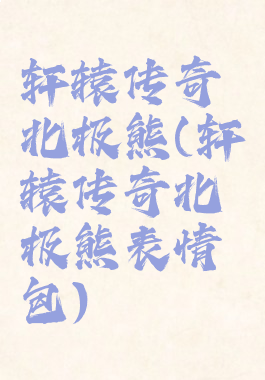 轩辕传奇
北极熊(轩
辕传奇北
极熊表情
包)